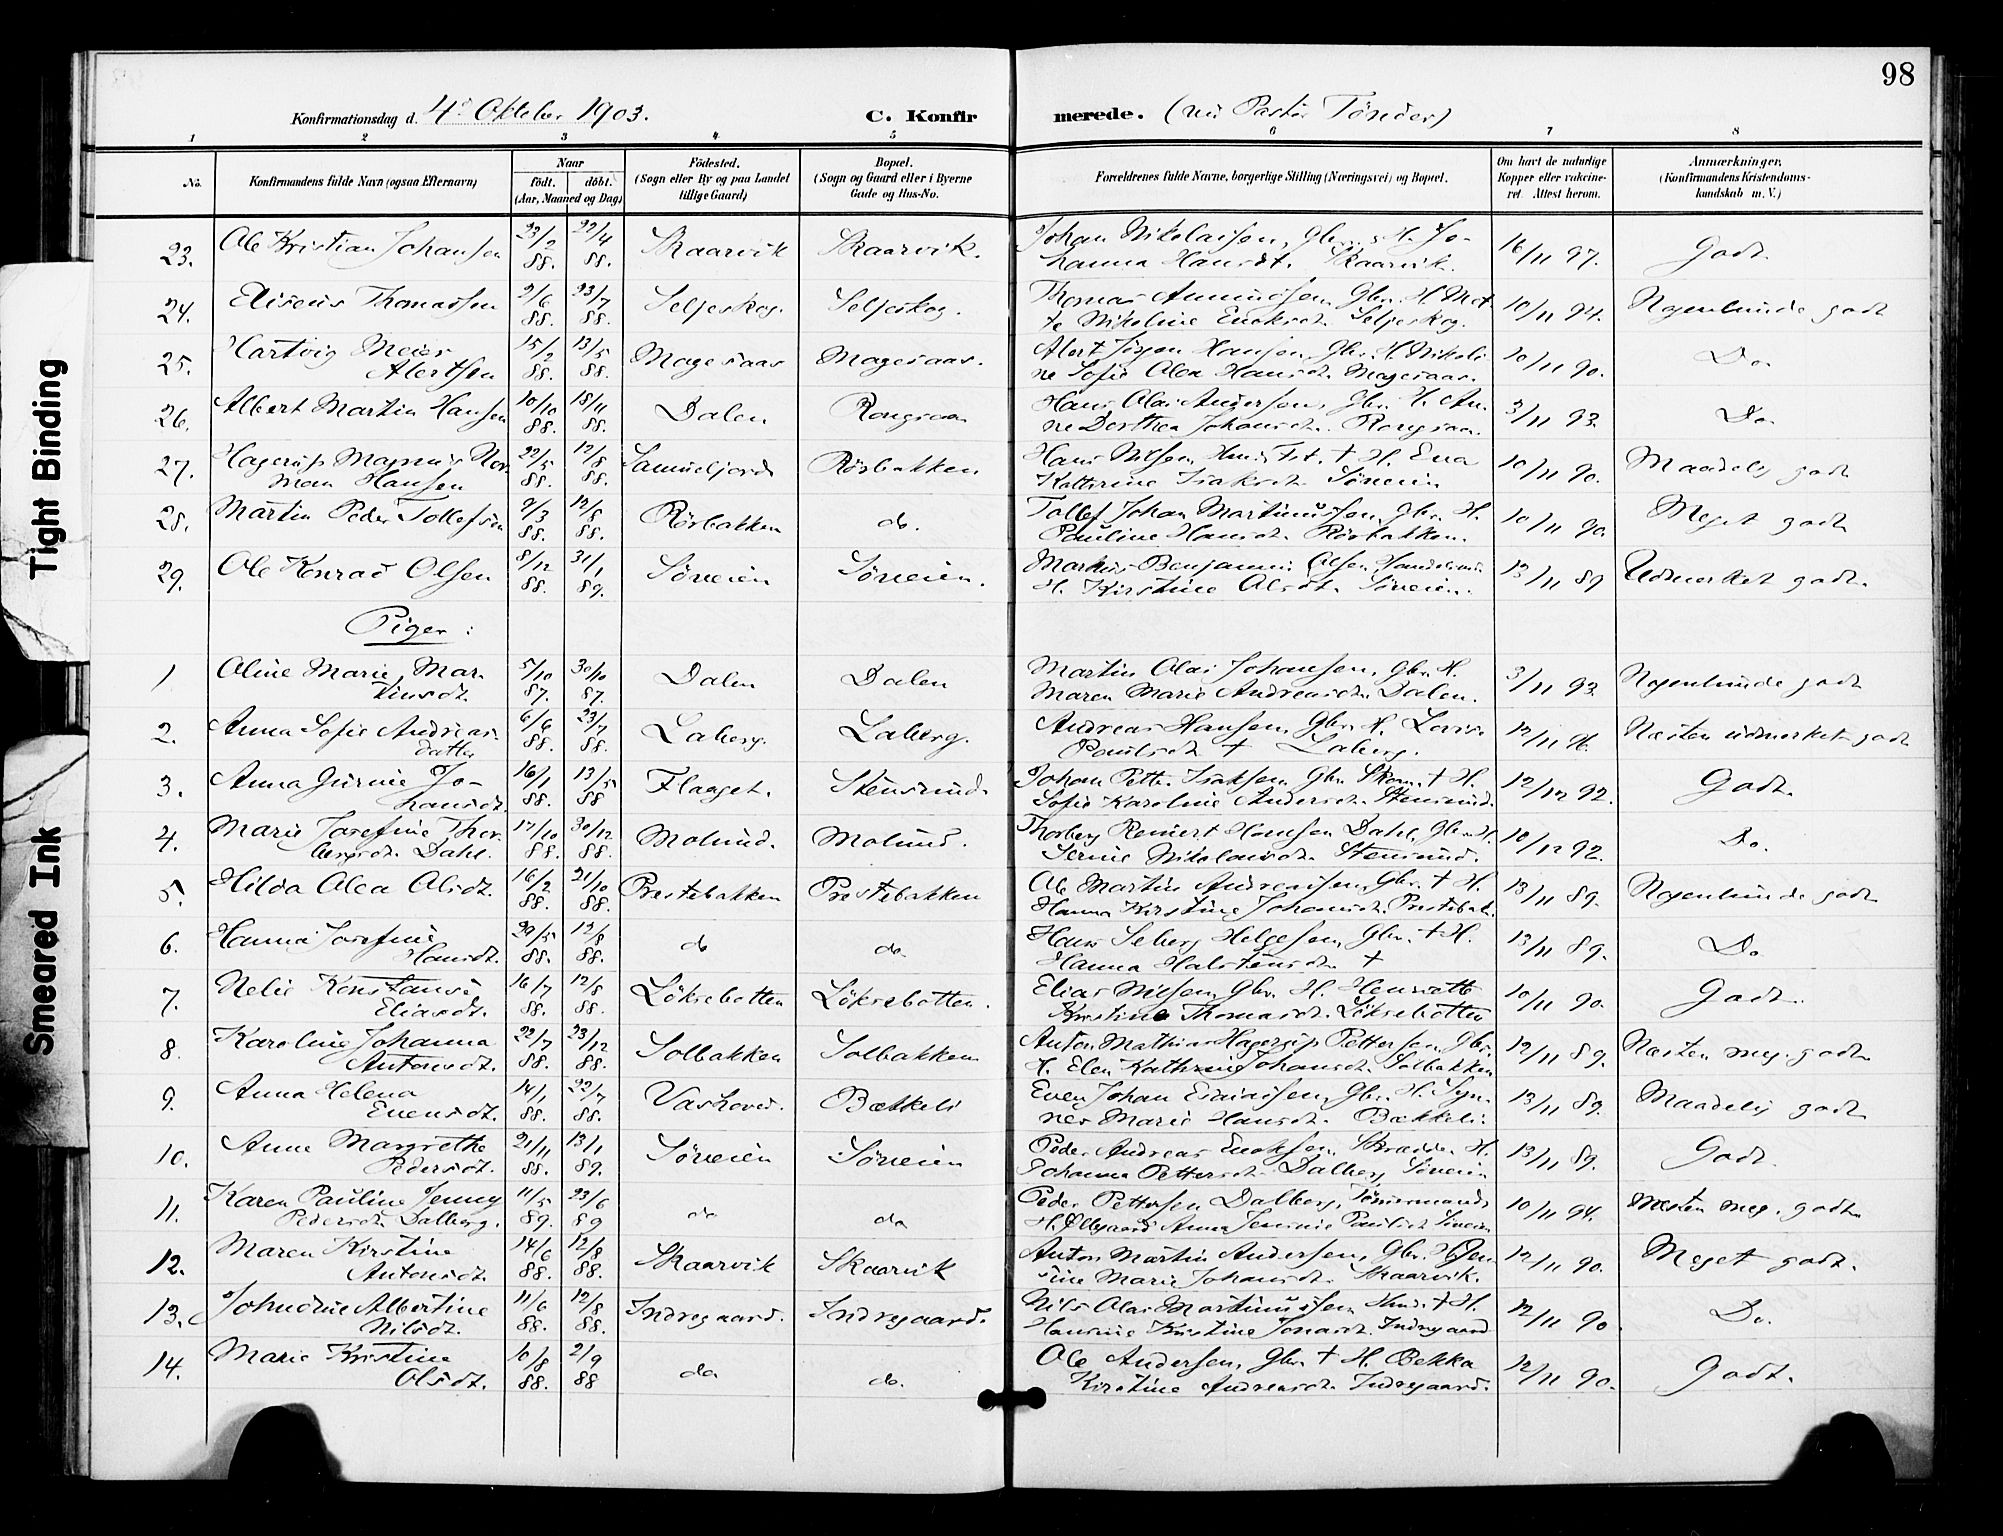 98
Konfirmationsdag d. 4de Oktober 1903. C. Konfirmerede. (ved Pastor Tønder)
1 2 3 4 5 6 7 8
No. Konfirmandens fulde Navn (ogsaa Efternavn) Naar født. døbt. (Aar, Maaned og Dag) Fødested. (Sogn eller By og paa Landet tillige Gaard) Bopæl. (Sogn og Gaard eller i Byerne Gade og Hus-No. Forældrenes fulde Navne, borgerlige Stilling (Næringsvei) og Bopæl. Om havt de naturlige Kopper eller vakcineret. Attest herom. Anmærkninger. (Konfirmandens Kristendomskundskab m. V.)
23. Ole Kristian Johansen 23/2 88. 22/4 88. Skaarvik Skaarvik. Johan Nikolaisen, Gbr. & H. Jo-
hanna Hansdt. Skaarvik. 16/11 97. Godt.
24. Eliseus Thomassen 2/6 88. 23/7 88. Seljeskog. Seljeskog. Thomas Amundsen, Gbr. H. Met-
te Nikoline Enoksdt. Seljeskog. 10/11 94. Nogenlunde godt
25. Hartvig Meier
Alertsen 15/2 88. 13/5 88. Magesaas Magesaas. Alert Jørgen Hansen, Gbr. H. Nikoli
ne Sofie Alea Hansdt. Magesaas. 10/11 90. Do.
26. Albert Martin Hansen 10/10 88. 18/11 88. Dalen Rongsaa Hans Olai Andersen, Gbr. H. An-
ne Dorthea Johansdt. Rongsaa. 3/11 93. Do.
27. Hagerup Magnus Nor
man Hansen 22/5 88. 12/8 88. Samueljord Rørbakken Hans Nilsen † H. Eva
Katherine Isaksdt. Sørveien 10/11 90. Maadelig godt
28. Martin Peder Tollefsen 2/3 88. 12/8 88. Rørbakken do. Tollef Johan Martinussen, Gbr. H.
Pauline Hansdt. Rørbakken. 10/11 90. Meget godt
29. Ole Konrad Olsen 8/12 88. 31/1 89. Sørveien Sørveien. Markus Benjamin Olsen, Handelsmd.
H. Kirstine Olsdt. Sørveien. 13/11 89 Udmerket godt.
Piger:
1 Oline Marie Mar-
tinsdt. 5/10 87. 30/10 87. Dalen Dalen Martin Olai Johansen, Gbr. H.
Maren Marie Andreasdt. Dalen. 3/11 93. Nogenlunde godt
2. Anna Sofie Andreas-
datter 6/6 88. 23/7 88. Laberg. Laberg. Andreas Hansen, Gbr. H. Lovise
Paulsdt † Laberg. 12/11 96. Næsten udmerket godt
3. Anna Gurine Jo-
hansdt. 16/1 88. 13/5 88 Flaaget. Stensund. Johan Petter Isaksen Gbr. Skom. † H.
Sofie Karoline Andersdt. Stensund. 12/12 92. Godt.
4. Marie Josefine Thor-
bergsdt. Dahl. 17/10 88. 30/12 88. Molund. Molund. Thorberg Reinert Hansen Dahl, Gbr. H.
Serine Nikolaisdt. Stensund. 10/12 92. Do.
5. Hilda Alea Olsdt. 16/2 88. 21/10 88. Prestebakken Prestebakken Ole Martin Andreassen, Gbr. † H.
Hanna Kirstine Johansdt. Prestebak. 13/11 89. Nogenlunde godt
6. Hanna Josefine
Hansdt. 29/5 88. 12/8 88. do do. Hans Seberg Helgesen, Gbr. † H.
Hanna Halstensdt † 13/11 89. Do
7. Nelie Konstanse
Eliasdt. 16/7 88. 12/8 88. Løksebotten Løksebotten. Elias Nilsen, Gbr. H. Henrette
Kristine Thomasdt. Løksebotten 10/11 90. Godt.
8. Karoline Johanna
Antonsdt. 22/7 88. 23/12 88. Solbakken Solbakken Anton Mathias Hagerup Pettersen, Gbr.
H. Elen Kathrine Johansdt. Solbakken 12/11 89. Næsten meg. godt
9. Anna Helena
Evensdt. 14/1 88. 22/7 88. Vashoved. Bækkeli Even Johan Esaiassen, Gbr. H. Syn-
nev Marie Hansdt. Bækkeli. 13/11 89. Maadelig godt
10. Anne Margrethe
Pedersdt. 21/11 88. 13/1 89. Sørveien Sørveien Peder Andreas Enoksen, Skrædder H.
Johanna Pettersdt. Dalberg, Sørveien 13/11 89. Godt.
11. Karen Pauline Jenny
Pedersdt. Dalberg. 11/5 89. 23/6 89 do do Peder Pettersen Dalberg, Tømmermand
H. Ollegaard Anna Jennie Paulsdt. Sørveien 10/11 94. Næsten meg. godt
12. Maren Kirstine
Antonsdt. 14/6 88. 12/8 88. Skaarvik Skaarvik Anton Martin Andersen, Gbr. H. Jen-
sine Marie Johansdt. Skaarvik. 12/11 90. Meget godt.
13. Johndine Albertine
Nilsdt. 11/6 88. 12/8 88. Indregaard. Indregaard. Nils Olai Martinussen, Hmd. † H.
Hansine Kristine Jonasdt. Indregaard 12/11 90. Do.
14. Marie Kristine
Olsdt. 10/8 88. 2/9 88 do do. Ole Andersen, Gbr. † H. Bekka
Kirstine Andreasdt. Indregaard. 12/11 90. Godt.
Tight Binding
Smeared Ink